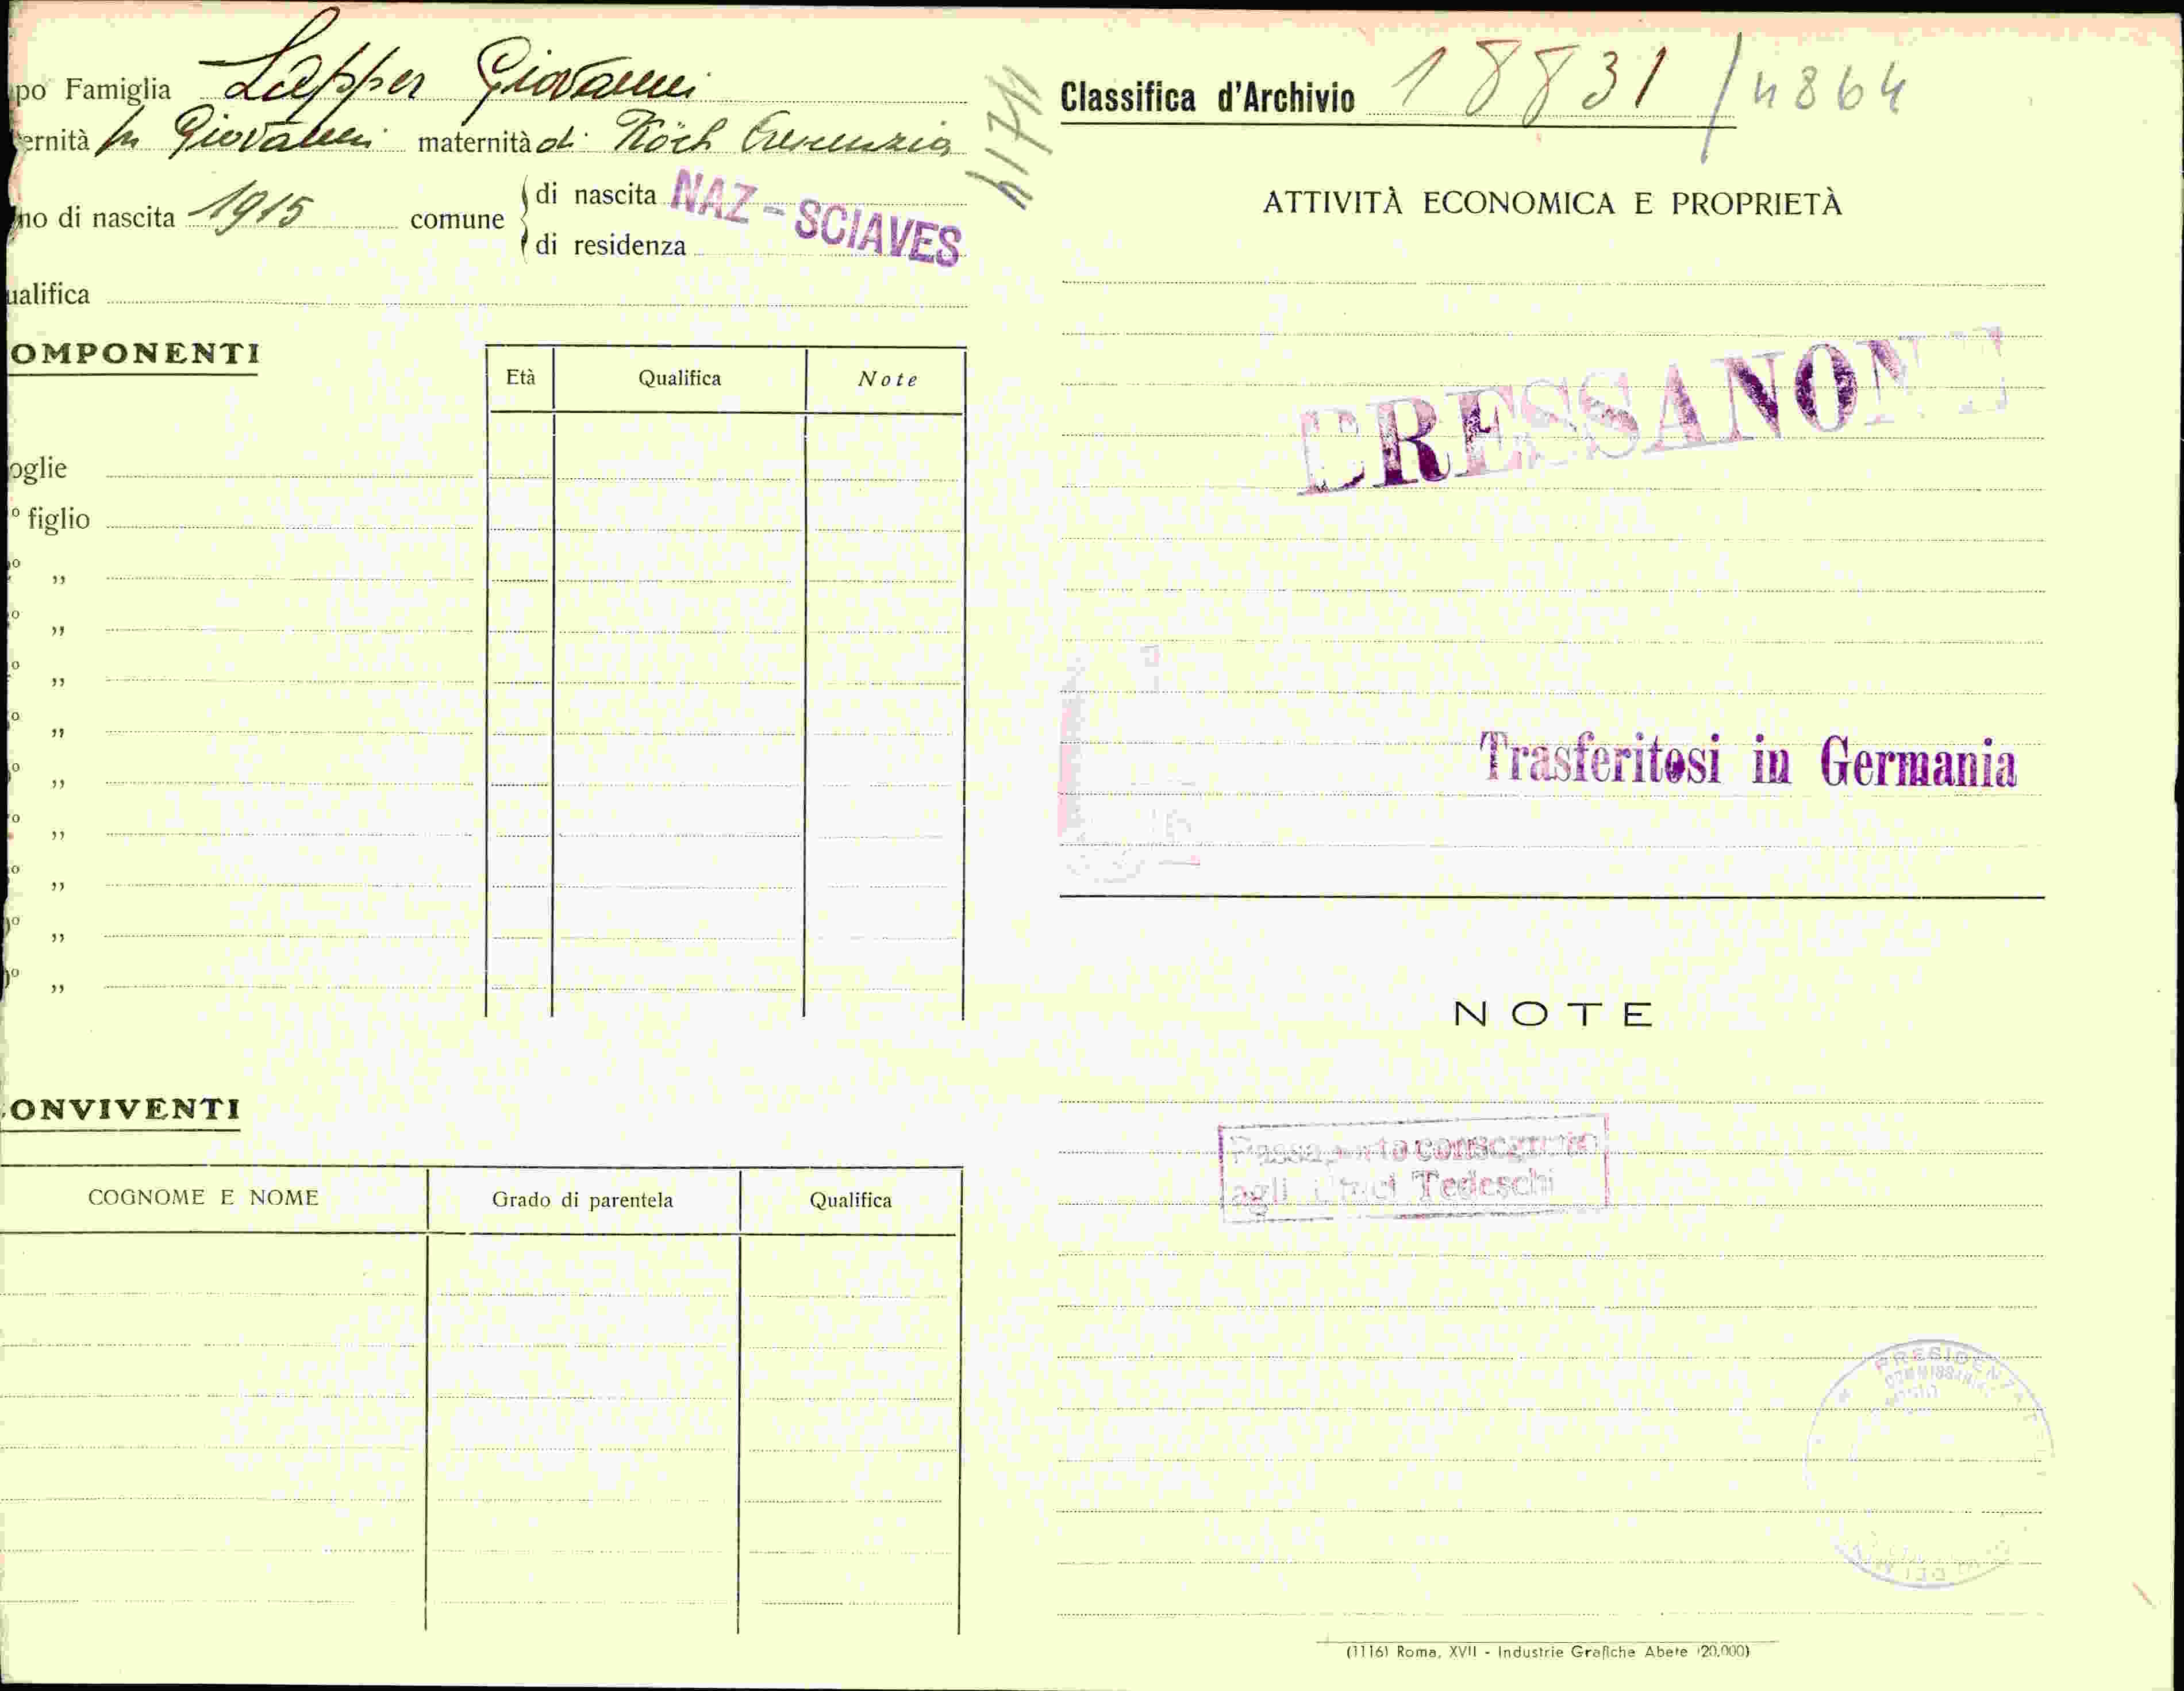 po Famiglia Lapper Giovanni
ernità fu Giovanni maternità di Köch Crescenzia
no di nascita 1915 comune di nascita NAZ - SCIAVES
di residenza
ualifica
OMPONENTI
Età Qualifica Note
oglie
º figlio
º „
º „
º „
º „
º „
º „
º „
º „
º „
ONVIVENTI
COGNOME E NOME Grado di parentela Qualifica
Classifica d'Archivio 18831 / 4864
ATTIVITÀ ECONOMICA E PROPRIETÀ
BRESSANONE
Trasferitosi in Germania
NOTE
Passaporto consegnato
agli Uffici Tedeschi
(1116) Roma, XVII - Industrie Grafiche Abete (20.000)